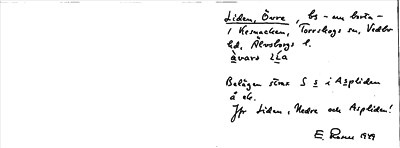 Liden, Övre, bs - en borta -
i Kesnacken, Torrskogs sn, Vedbo
hd, Älvsborgs l.
åvarə lia
Belägen strax S s i Aspliden
å ek.
Jfr Liden, Nedre och Aspliden!
E. Rosell 1949